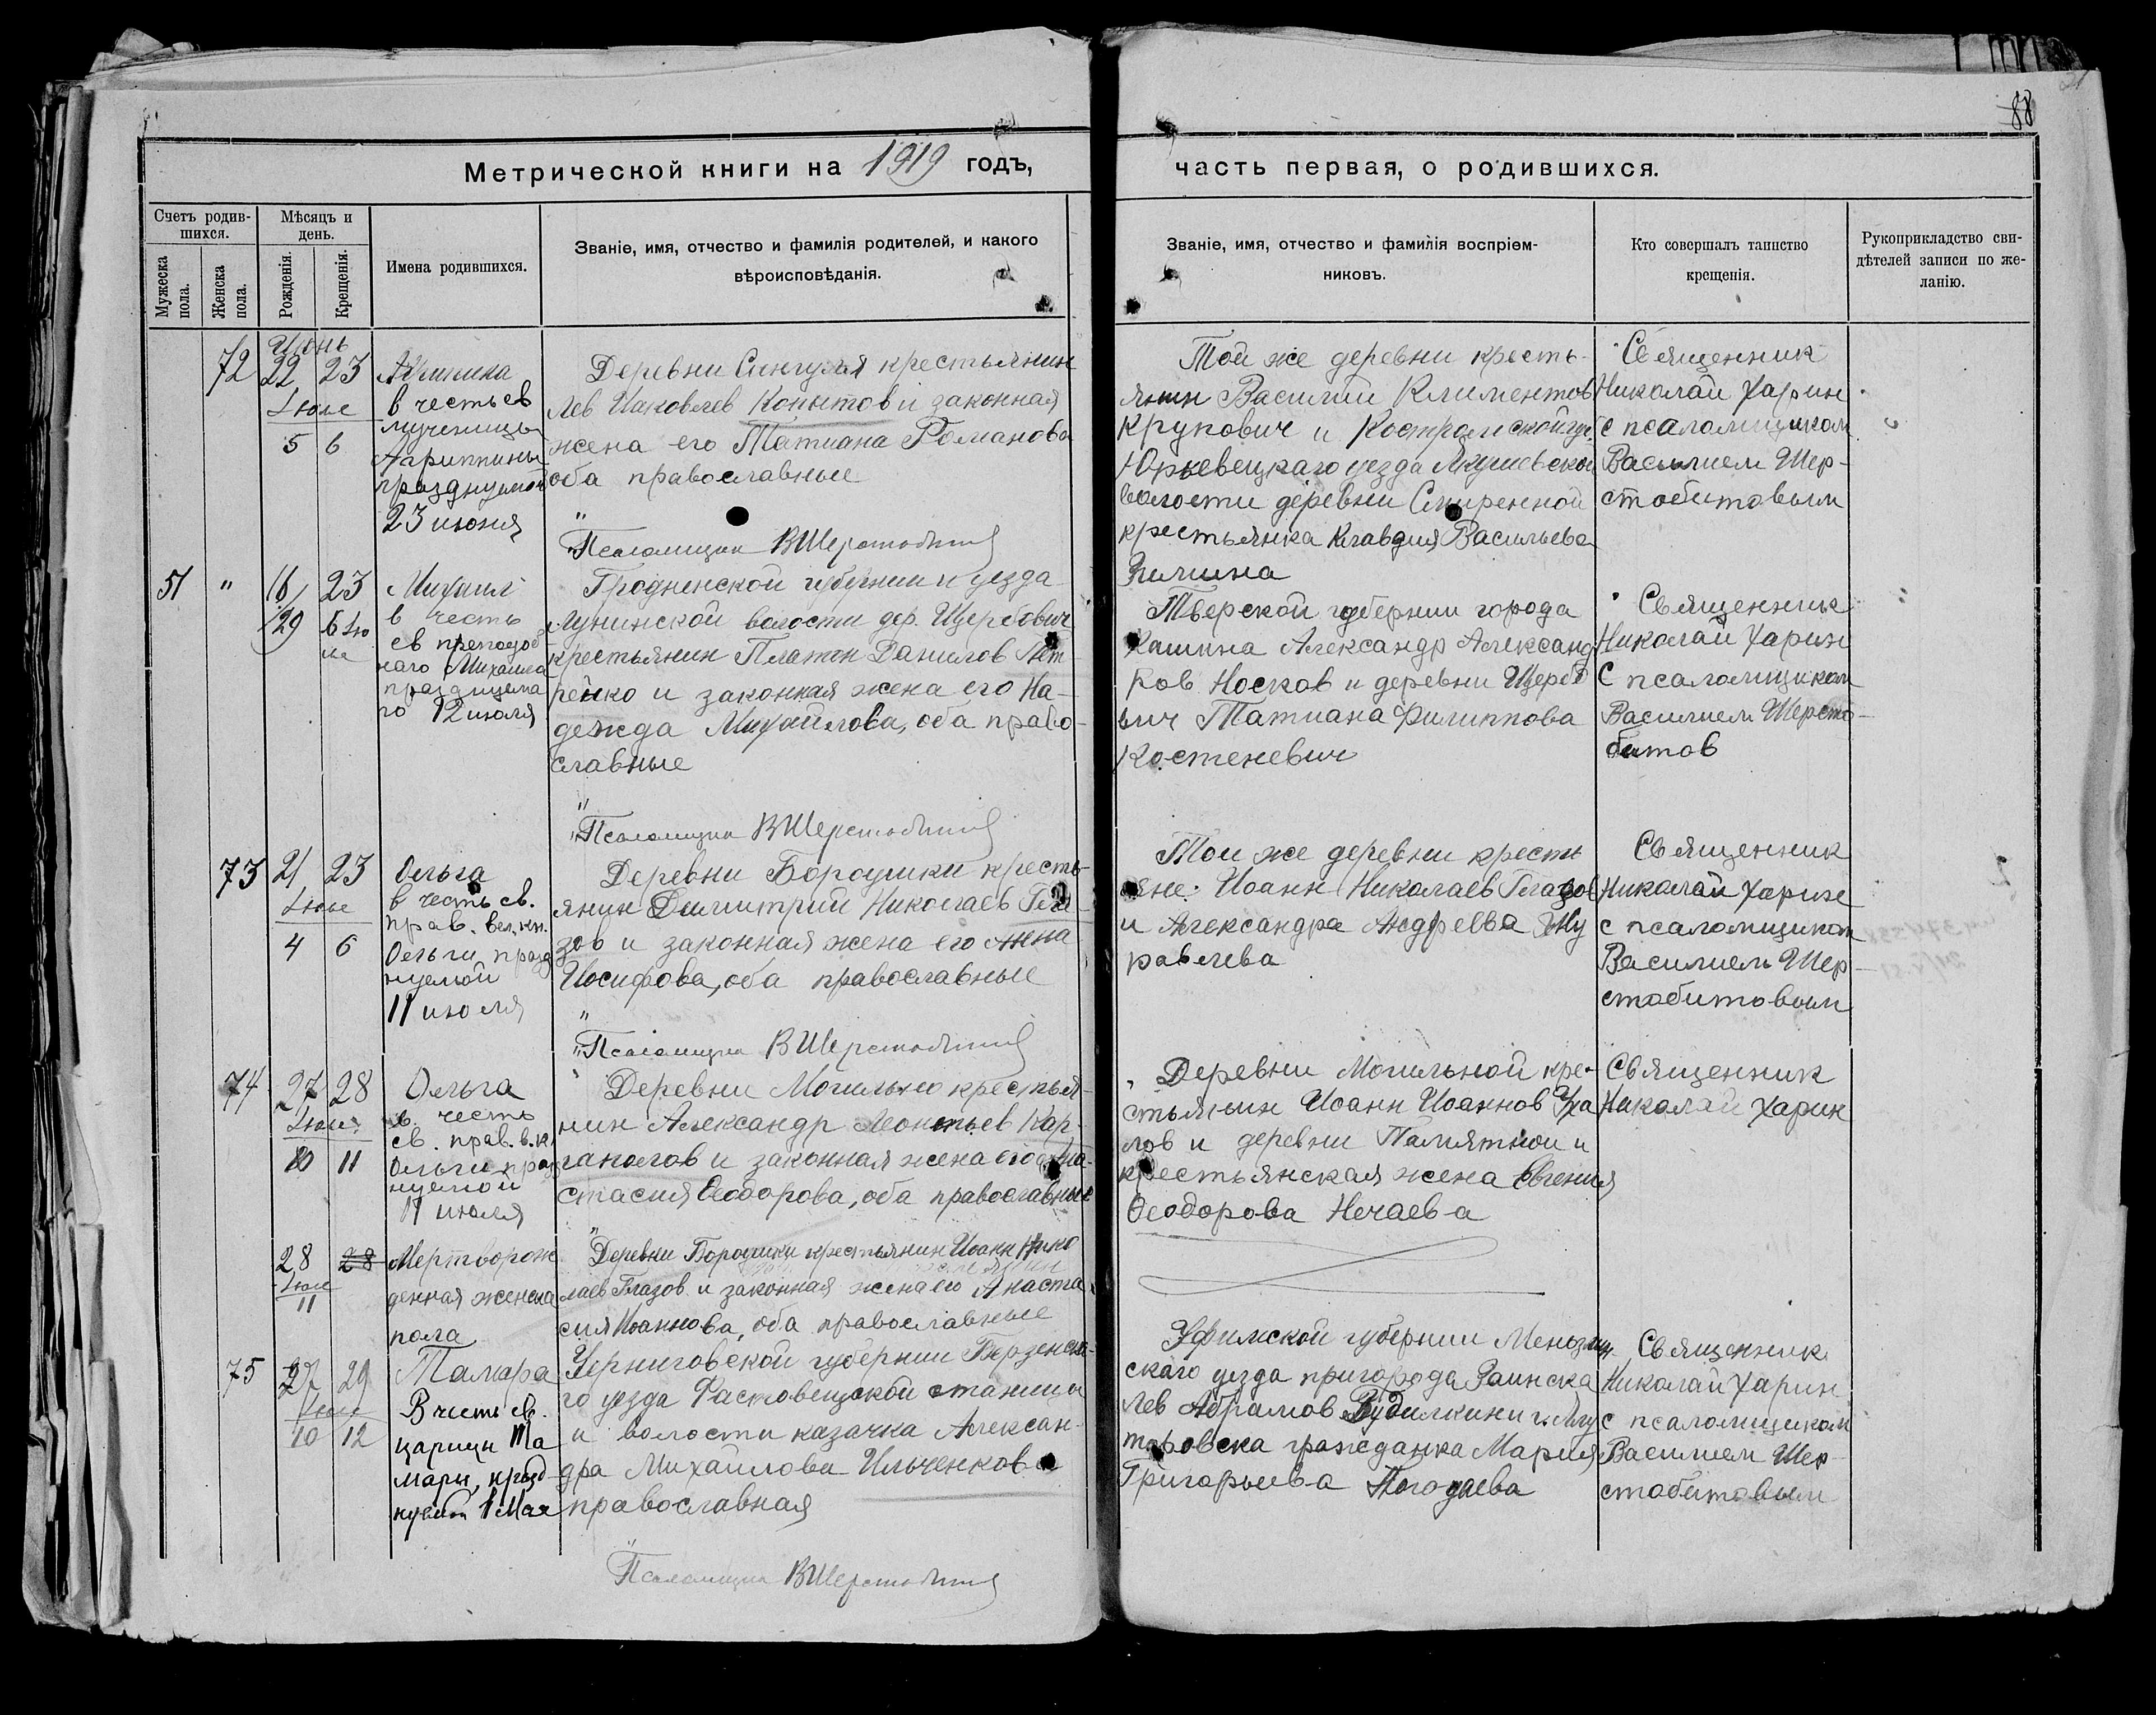 88
Метрической книги на 1919 годъ,
часть первая, о родившихся.
Счетъ родив-
шихся.
Мужеска
пола.
Женска
пола.
Мѣсяцъ и
день.
Рожденія.
Крещенія.
Имена родившихся.
Званіе, имя, отчество и фамилія родителей, и какого
вѣроисповѣданія.
Званіе, имя, отчество и фамилія воспріем-
никовъ.
Кто совершалъ таинство
крещенія.
Рукоприкладство сви-
дѣтелей записи по же-
ланію.
72
Июнь
22 23
Июле
5 6
в честь св
мученицы
Агриппины
празднуемой
23 июня
Деревни крестьянин
Лев Иаковлев Копытов и законная
жена его Татиана Романова
оба православные
Псаломщик ВШерстобитов
Той же деревни кресть-
янин Василий Климентов
Крупович и Костромской губ.
Юрьевецкаго уезда
волости деревни Смиренной
крестьянка Клавдия Васильева
Священник
Николай Харин
с псаломщиком
Василием Шер-
стобитовым
51 " 16 23
29 6 Ию
ле
Михаил
в честь
св преподоб
наго Михаила
празднуема
го 12 июля
Гродненской губернии и уезда
Лунинской волости дер. Щербович
крестьянин Платон Данилов Пет
рейко и законная жена его На-
дежда Михайлова, оба право-
славные
Псаломщик ВШерстобитов
Тверской губернии города
Кашина Александр Александ
ров Носков и деревни Щербо
вич Татиана Филиппова
Костеневич
Священник
Николай Харин
С псаломщиком
Василием Шерсто-
битов
73 21 23
Июле
4 6
Ольга
в честь св.
прав. вел. кн.
Ольги, празд
нуемой
11 июля
Деревни Бородушки кресть-
янин Димитрий Николаев Гла
зов и законная жена его Анна
Иосифова, оба православные
Псаломщик ВШерстобитов
Той же деревни кресть
яне: Иоанн Николаев Глазов
и Александра Андреева Жу
равлева
Священник
Николай Харин
с псаломщиком
Василием Шер-
стобитовым
74 27 28
Июле
10 11
Ольга
в честь
св. прав. в.к.
Ольги, празд
нуемой
11 июля
Деревни Могильно крестья-
нин Александр Леонтьев Кар-
гаполов и законная жена его Ана-
стасия Феодорова, оба православные
Деревни Могильной кре-
стьянин Иоанн Иоаннов Уха
лов и деревни Памятной и
крестьянская жена Евгения
Феодорова Нечаева
Священник
Николай Харин
28 28
Июле
11
Мертворож
денная женска
пола
Деревни Бородушки крестьянин Иоанн Нико
лаев Глазов и законная жена его Анаста
сия Иоаннова, оба православные
75 27 29
Июле
10 12
Тамара
В честь св.
царицы Та
мары, празд
нуемой 1 Мая
Черниговской губернии Борзенска-
го уезда станицы
и волости казачка Алексан-
дра Михайлова Ильченкова
православная
Псаломщик ВШерстобитов
Уфимской губернии Мензелин
скаго уезда пригорода Заинска
Лев Абрамов Будилкин и г. Ялу
торовска гражданка Мария
Григорьева Погодаева
Священник
Николай Харин
с псаломщиком
Василием Шер-
стобитовым